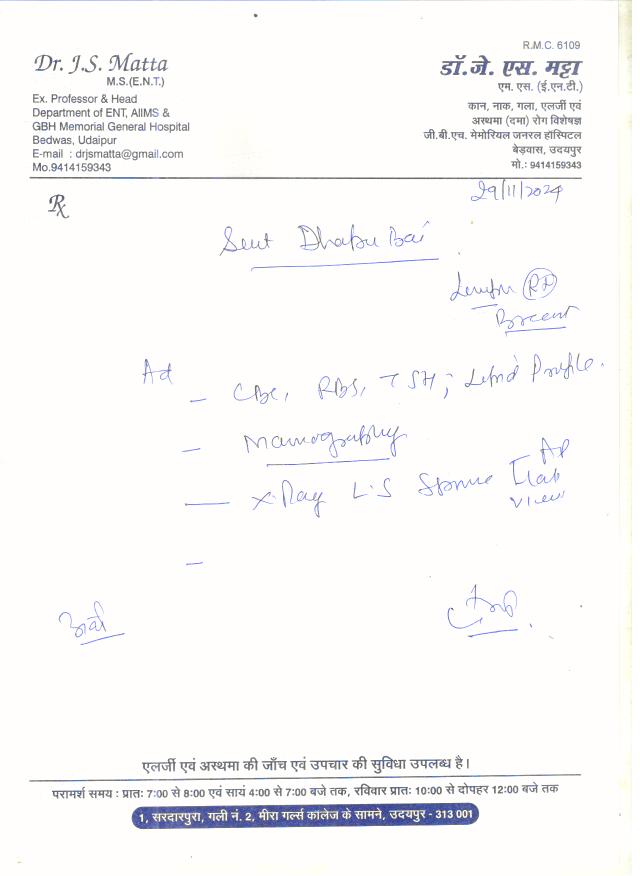 R.M.C. 6109
Dr. J.S. Matta
M.S.(E.N.T.)
Ex. Professor & Head
Department of ENT, AIIMS &
GBH Memorial General Hospital
Bedwas, Udaipur
E-mail : drjsmatta@gmail.com
Mo.9414159343
डॉ. जे. एस. मट्टा
एम. एस. (ई.एन.टी.)
कान, नाक, गला, एलर्जी एवं
अस्थमा (दमा) रोग विशेषज्ञ
जी.बी.एच. मेमोरियल जनरल हॉस्पिटल
बेड़वास, उदयपुर
मो.: 9414159343
29/11/2024
Rx
Smt Dhapu Bai
(Rt)
Breast
Ad
- CBC, RBS, TSH; Lipid Profile.
- Mamography
- X-Ray L.S Spine AP
Lat
view
-
एलर्जी एवं अस्थमा की जाँच एवं उपचार की सुविधा उपलब्ध है।
परामर्श समय : प्रातः 7:00 से 8:00 एवं सायं 4:00 से 7:00 बजे तक, रविवार प्रातः 10:00 से दोपहर 12:00 बजे तक
1, सरदारपुरा, गली नं. 2, मीरा गर्ल्स कालेज के सामने, उदयपुर - 313 001